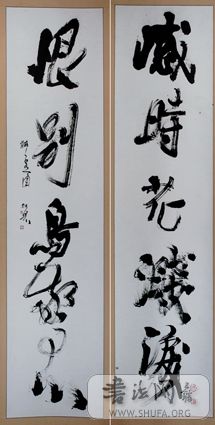 感時花濺淚
恨別鳥驚心
書法网
WWW.SHUFA.ORG